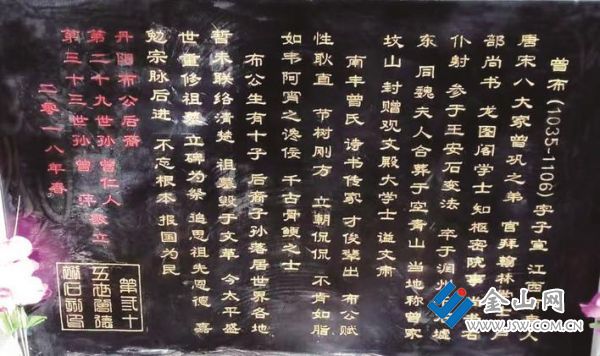 曾布(1035-1106)字子宣 江西人
唐宋八大家曾巩之弟 官拜翰林学士户
部尚书 龙图阁学士 知枢密院事 右
仆射 参于王安石变法 卒于润州 墟
东 同魏夫人合葬于空青山 当地称曾家
坟山 封赠观文殿大学士 谥文肃
南丰曾氏 诗书传家 才俊辈出 布公赋
性耿直 节树刚方 立朝侃侃 不肯如脂
如韦阿宵之谗佞 千古骨鲠之士
布公生有十子 后裔子孙落居世界各地
暂未联络清楚 祖墓毁于文革 今太平盛
世重修祖墓 立碑为祭 追思祖先恩德 嘉
勉宗脉后进 不忘根本 报国为民
丹阳布公后裔
第二十九世孙 曾仁人
第三十三世孙 曾 敬立
二零一八年春
金山网
WWW.JSW.COM.CN